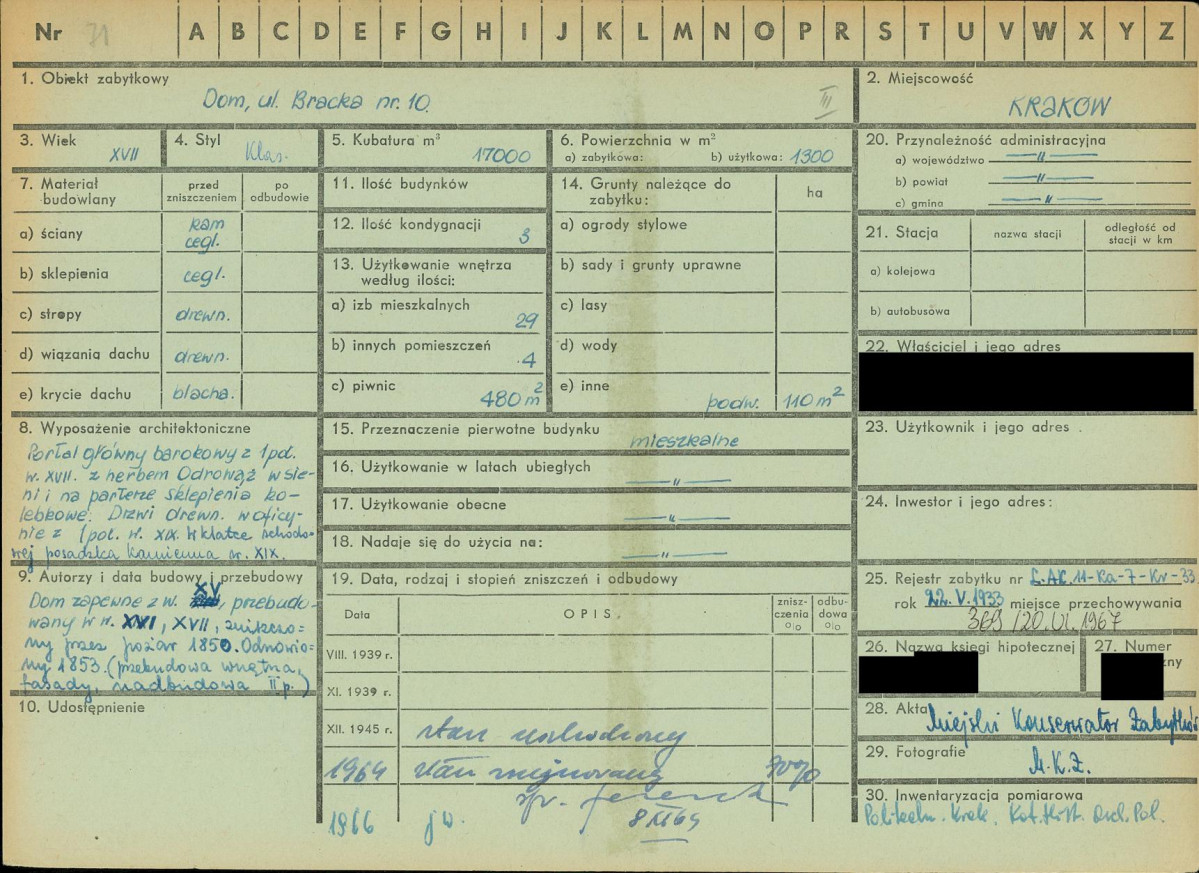 Nr 71 A B C D E F G H I J K L M N O P R S T U V W X Y Z
1. Obiekt zabytkowy
Dom, ul. Bracka nr. 10.
III
2. Miejscowość
KRAKÓW
3. Wiek
XVII
4. Styl
Klas.
5. Kubatura m³
17000
6. Powierzchnia w m²
a) zabytkowa: b) użytkowa: 1300
20. Przynależność administracyjna
a) województwo —"—
b) powiat —"—
c) gmina —"—
7. Materiał budowlany
przed zniszczeniem
po odbudowie
a) ściany kam cegl.
b) sklepienia cegl.
c) stropy drewn.
d) wiązania dachu drewn.
e) krycie dachu blacha.
11. Ilość budynków
12. Ilość kondygnacji 3
13. Użytkowanie wnętrza
według ilości:
a) izb mieszkalnych 29
b) innych pomieszczeń 4
c) piwnic 480 m²
14. Grunty należące do
zabytku:
ha
a) ogrody stylowe
b) sady i grunty uprawne
c) lasy
d) wody
e) inne podw. 110 m²
21. Stacja
nazwa stacji
odległość od
stacji w km
a) kolejowa
b) autobusowa
22. Właściciel i jego adres
8. Wyposażenie architektoniczne
Portal główny barokowy z 1 poł.
w. XVII. z herbem Odrowąż w sie-
ni i na parterze sklepienia ko-
lebkowe. Drzwi drewn. w oficy-
nie z 1 poł. w. XIX. W klatce schodo-
wej posadzka kamienna w. XIX.
9. Autorzy i data budowy i przebudowy
Dom zapewne z w. XV, przebudo-
wany w w. XVI, XVII, zniszczo-
ny przez pożar 1850. Odnowio-
ny 1853. (przebudowa wnętrza,
fasady, nadbudowa II p.)
10. Udostępnienie
15. Przeznaczenie pierwotne budynku mieszkalne
16. Użytkowanie w latach ubiegłych —"—
17. Użytkowanie obecne —"—
18. Nadaje się do użycia na: —"—
19. Data, rodzaj i stopień zniszczeń i odbudowy
Data
OPIS.
znisz-
czenia
%
odbu-
dowa
%
VIII. 1939 r.
XI. 1939 r.
XII. 1945 r.
stan
1964 stan 70%
spr.
8 XII 64
1966 jw.
23. Użytkownik i jego adres
24. Inwestor i jego adres:
25. Rejestr zabytku nr L.AK.11-Ka-7-Kr-33
rok 22.V.1933 miejsce przechowywania
369/20.VI.1967
26. Nazwa księgi hipotecznej
27. Numer
28. Akta Miejski Konserwator Zabytków
29. Fotografie
M.K.Z.
30. Inwentaryzacja pomiarowa
Politechn. Krak. Kat. Hist. Arch. Pol.